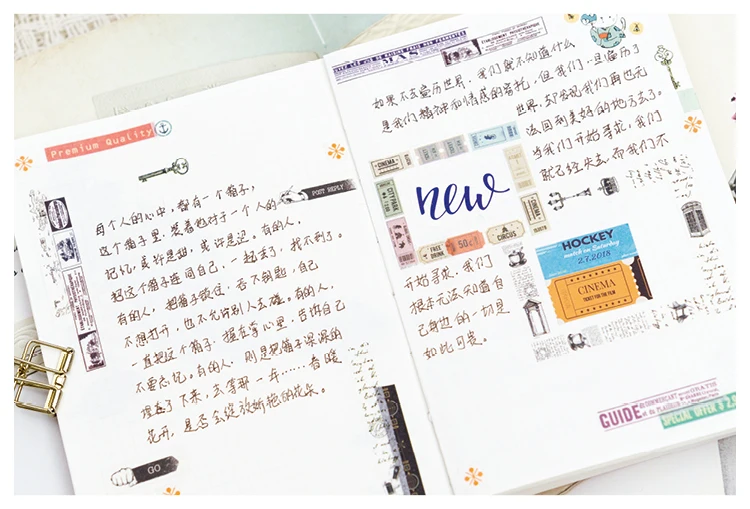 Premium Quality
每个人的心中，都有一个箱子，
这个箱子里，装着他对于一个人的
POST REPLY
记忆，或许是甜，或许是涩。有的人，
把这个箱子连同自己，一起丢了，找不到了。
有的人，把箱子锁住，丢下钥匙，自己
不想打开，也不允许别人去碰。有的人，
一直把这个箱子，握在掌心里，告诉自己
不要忘记。有的人，则是把箱子深深的
埋起了下来，去等那一年……春暖
花开，是否会绽放娇艳的花朵。
GO
如果不去遍历世界，我们就不知道什么
是我们精神和情感的寄托，但我们一旦遍历了
世界，却发现我们再也无
法回到美好的地方去了。
当我们开始寻求，我们
就已经失去，而我们不
CINEMA
new
FREE DRINK
50¢
CIRCUS
CINEMA
开始寻求，我们
根本无法知道自
己身边的一切是
如此可贵。
HOCKEY
match on Saturday
2.7.2018
CINEMA
TICKET FOR THE FILM
GUIDE
GRATIS
SPECIAL OFFER $ 2.9